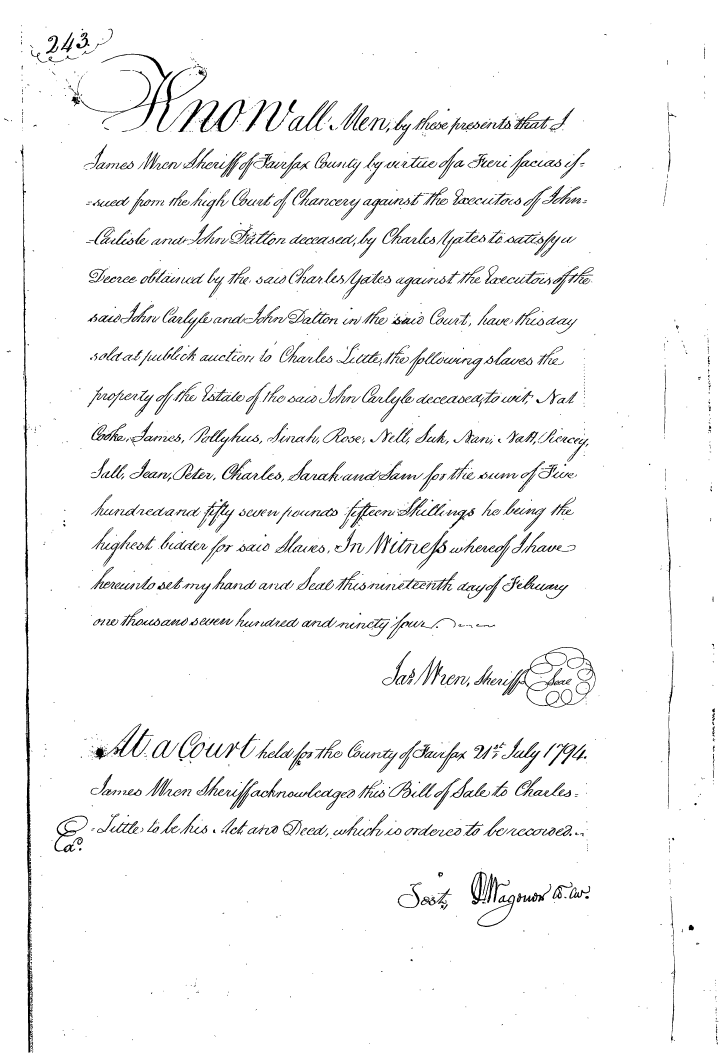 243.
Know all Men, by these presents that I
James Wren Sheriff of Fairfax County by virtue of a Fieri facias is=
=sued from the high Court of Chancery against the Executors of John=
=Carlisle and John Dalton deceased, by Charles Yates to satisfy a
Decree obtained by the said Charles Yates against the Executors of the
said John Carlyle and John Dalton in the said Court, have this day
sold at publick auction to Charles Little, the following slaves the
property of the Estate of the said John Carlyle deceased, to wit, Nat
Cooke, James, Pollyhus, Sinah, Rose, Nell, Suk, Nan, Natt, Piercey,
Sall, Jean, Peter, Charles, Sarah and Sam for the sum of Five
hundred and fifty seven pounds fifteen Shillings he being the
highest bidder for said Slaves. In Witness whereof I have
hereunto set my hand and Seal this nineteenth day of February
one thousand seven hundred and ninety four.
Jas. Wren, Sheriff Seal
At a Court held for the County of Fairfax 21st July 1794.
James Wren Sheriff acknowledged this Bill of Sale to Charles=
=Little to be his Act and Deed, which is ordered to be recorded.
Exd.
Test, P. Wagener Cl. Cur.